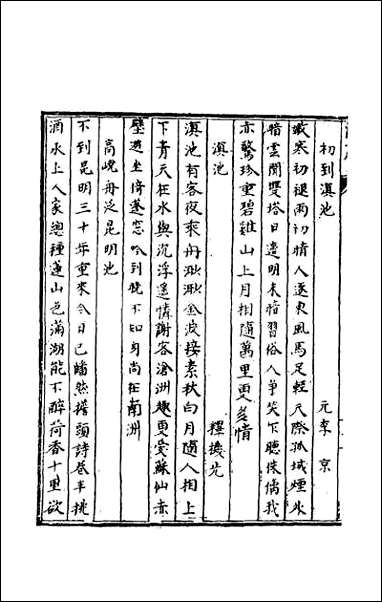 初到滇池
元李京
嫩寒初褪雨初晴人逐東風馬足輕天際孤城煙外
暗雲間雙塔日邊明未諳習俗人爭笑下聽侏儒我
亦驚珍重碧雞山上月相隨萬里更多情
滇池
釋機先
滇池有客夜乘舟渺渺金波接素秋白月隨人相上
下青天在水與沉浮遥情謝客滄洲趣更愛蘇仙赤
壁遊坐倚蓬窓吟到曉不知身尚在南洲
高嶢舟泛昆明池
不到昆明三十年重來今日已皤然擔頭詩卷半挑
酒水上人家總種蓮山色滿湖能不醉荷香十里欲